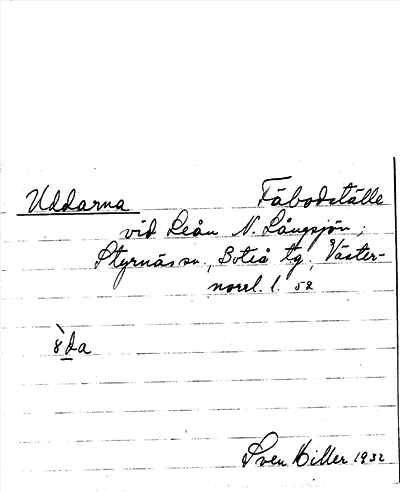 Uddarna Fäbodställe
vid Leån N. Långsjön,
Styrnäs sn., Boteå tg., Väster-
norrl. l. 52
Sven Hiller 1932